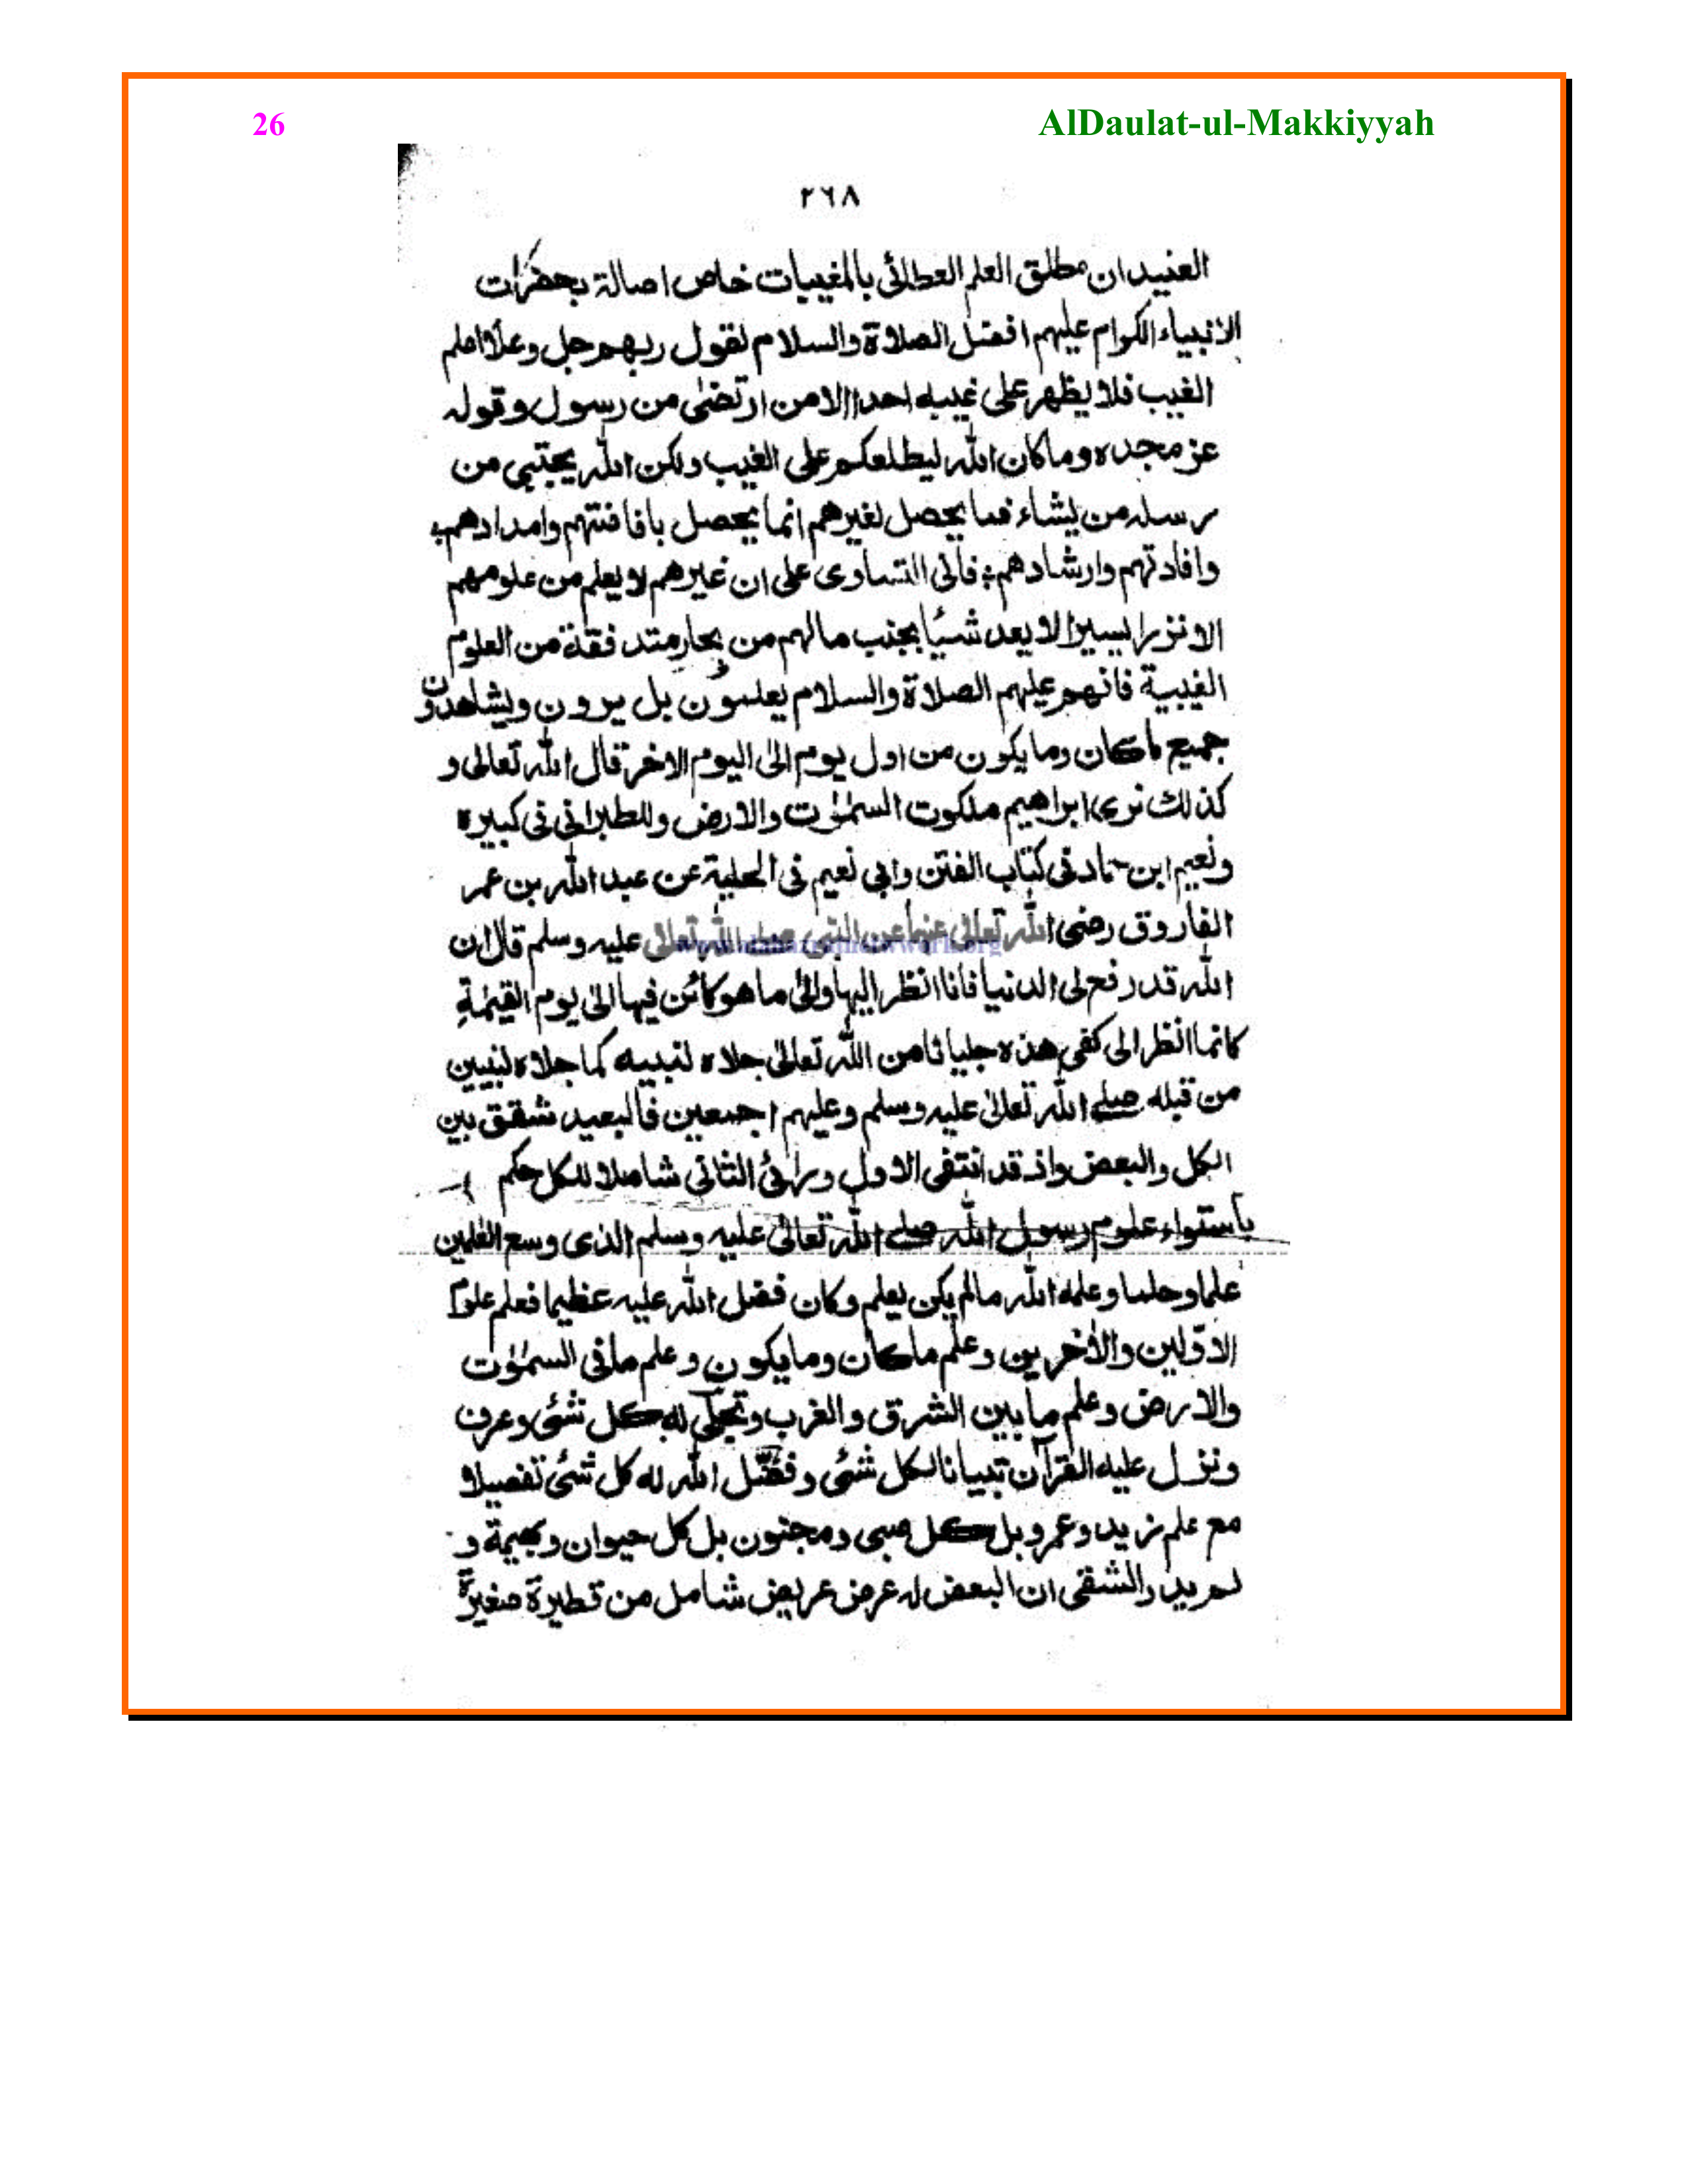 26 AlDaulat-ul-Makkiyyah
٢٦٨
العنيد ان مطلق العلم العطائى بالمغيبات خاص اصالة بحضرات
الانبياء الكرام عليهم افضل الصلاة والسلام لقول ربهم جل وعلا عالم
الغيب فلا يظهر على غيبه احدا الا من ارتضى من رسول وقوله
عز مجده وما كان الله ليطلعكم على الغيب ولكن الله يجتبى من
رسله من يشاء فما يحصل لغيرهم انما يحصل بافاضتهم وامدادهم
وافادتهم وارشادهم فانى التساوى على ان غيرهم لا يعلم من علومهم
الا نزرا يسيرا لا يعد شيئا بجنب مالهم من بحار متدفقة من العلوم
الغيبية فانهم عليهم الصلاة والسلام يعلمون بل يرون ويشاهدون
جميع ما كان وما يكون من اول يوم الى اليوم الاخر قال الله تعالى و
كذلك نرى ابراهيم ملكوت السمٰوٰت والارض وللطبرانى فى كبيره
ونعيم ابن حماد فى كتاب الفتن وابى نعيم فى الحلية عن عبد الله بن عمر
الفاروق رضى الله تعالى عنهما عن النبى صلى الله تعالى عليه وسلم قال ان
الله قد رفع لى الدنيا فانا انظر اليها والى ما هو كائن فيها الى يوم القيمة
كانما انظر الى كفى هذه جليانا من الله تعالى جلاه لنبيه كما جلاه لنبيين
من قبله صلے الله تعالى عليه وسلم وعليهم اجمعين فالبعيد شقق بين
الكل والبعض واذ قد انتفى الاول ورائ الثانى شاملا للكل حكم
باستواء علوم رسول الله صلے الله تعالى عليه وسلم الذى وسع العٰلمين
علما وحلما وعلمه الله مالم يكن يعلم وكان فضل الله عليه عظيما فعلم علوم
الاوّلين والاٰخرين وعلم ما كان وما يكون وعلم ما فى السمٰوٰت
والارض وعلم ما بين الشرق والغرب وتجلّى له كل شئ وعرف
ونزل عليه القراٰن تبيانا لكل شئ وفصّل الله له كل شئ تفصيلا
مع علم زيد وعمرو بل كل صبى ومجنون بل كل حيوان وبهيمة و
لم يدر الشقى ان البعض له عرض عريض شامل من قطيرة صغيرة